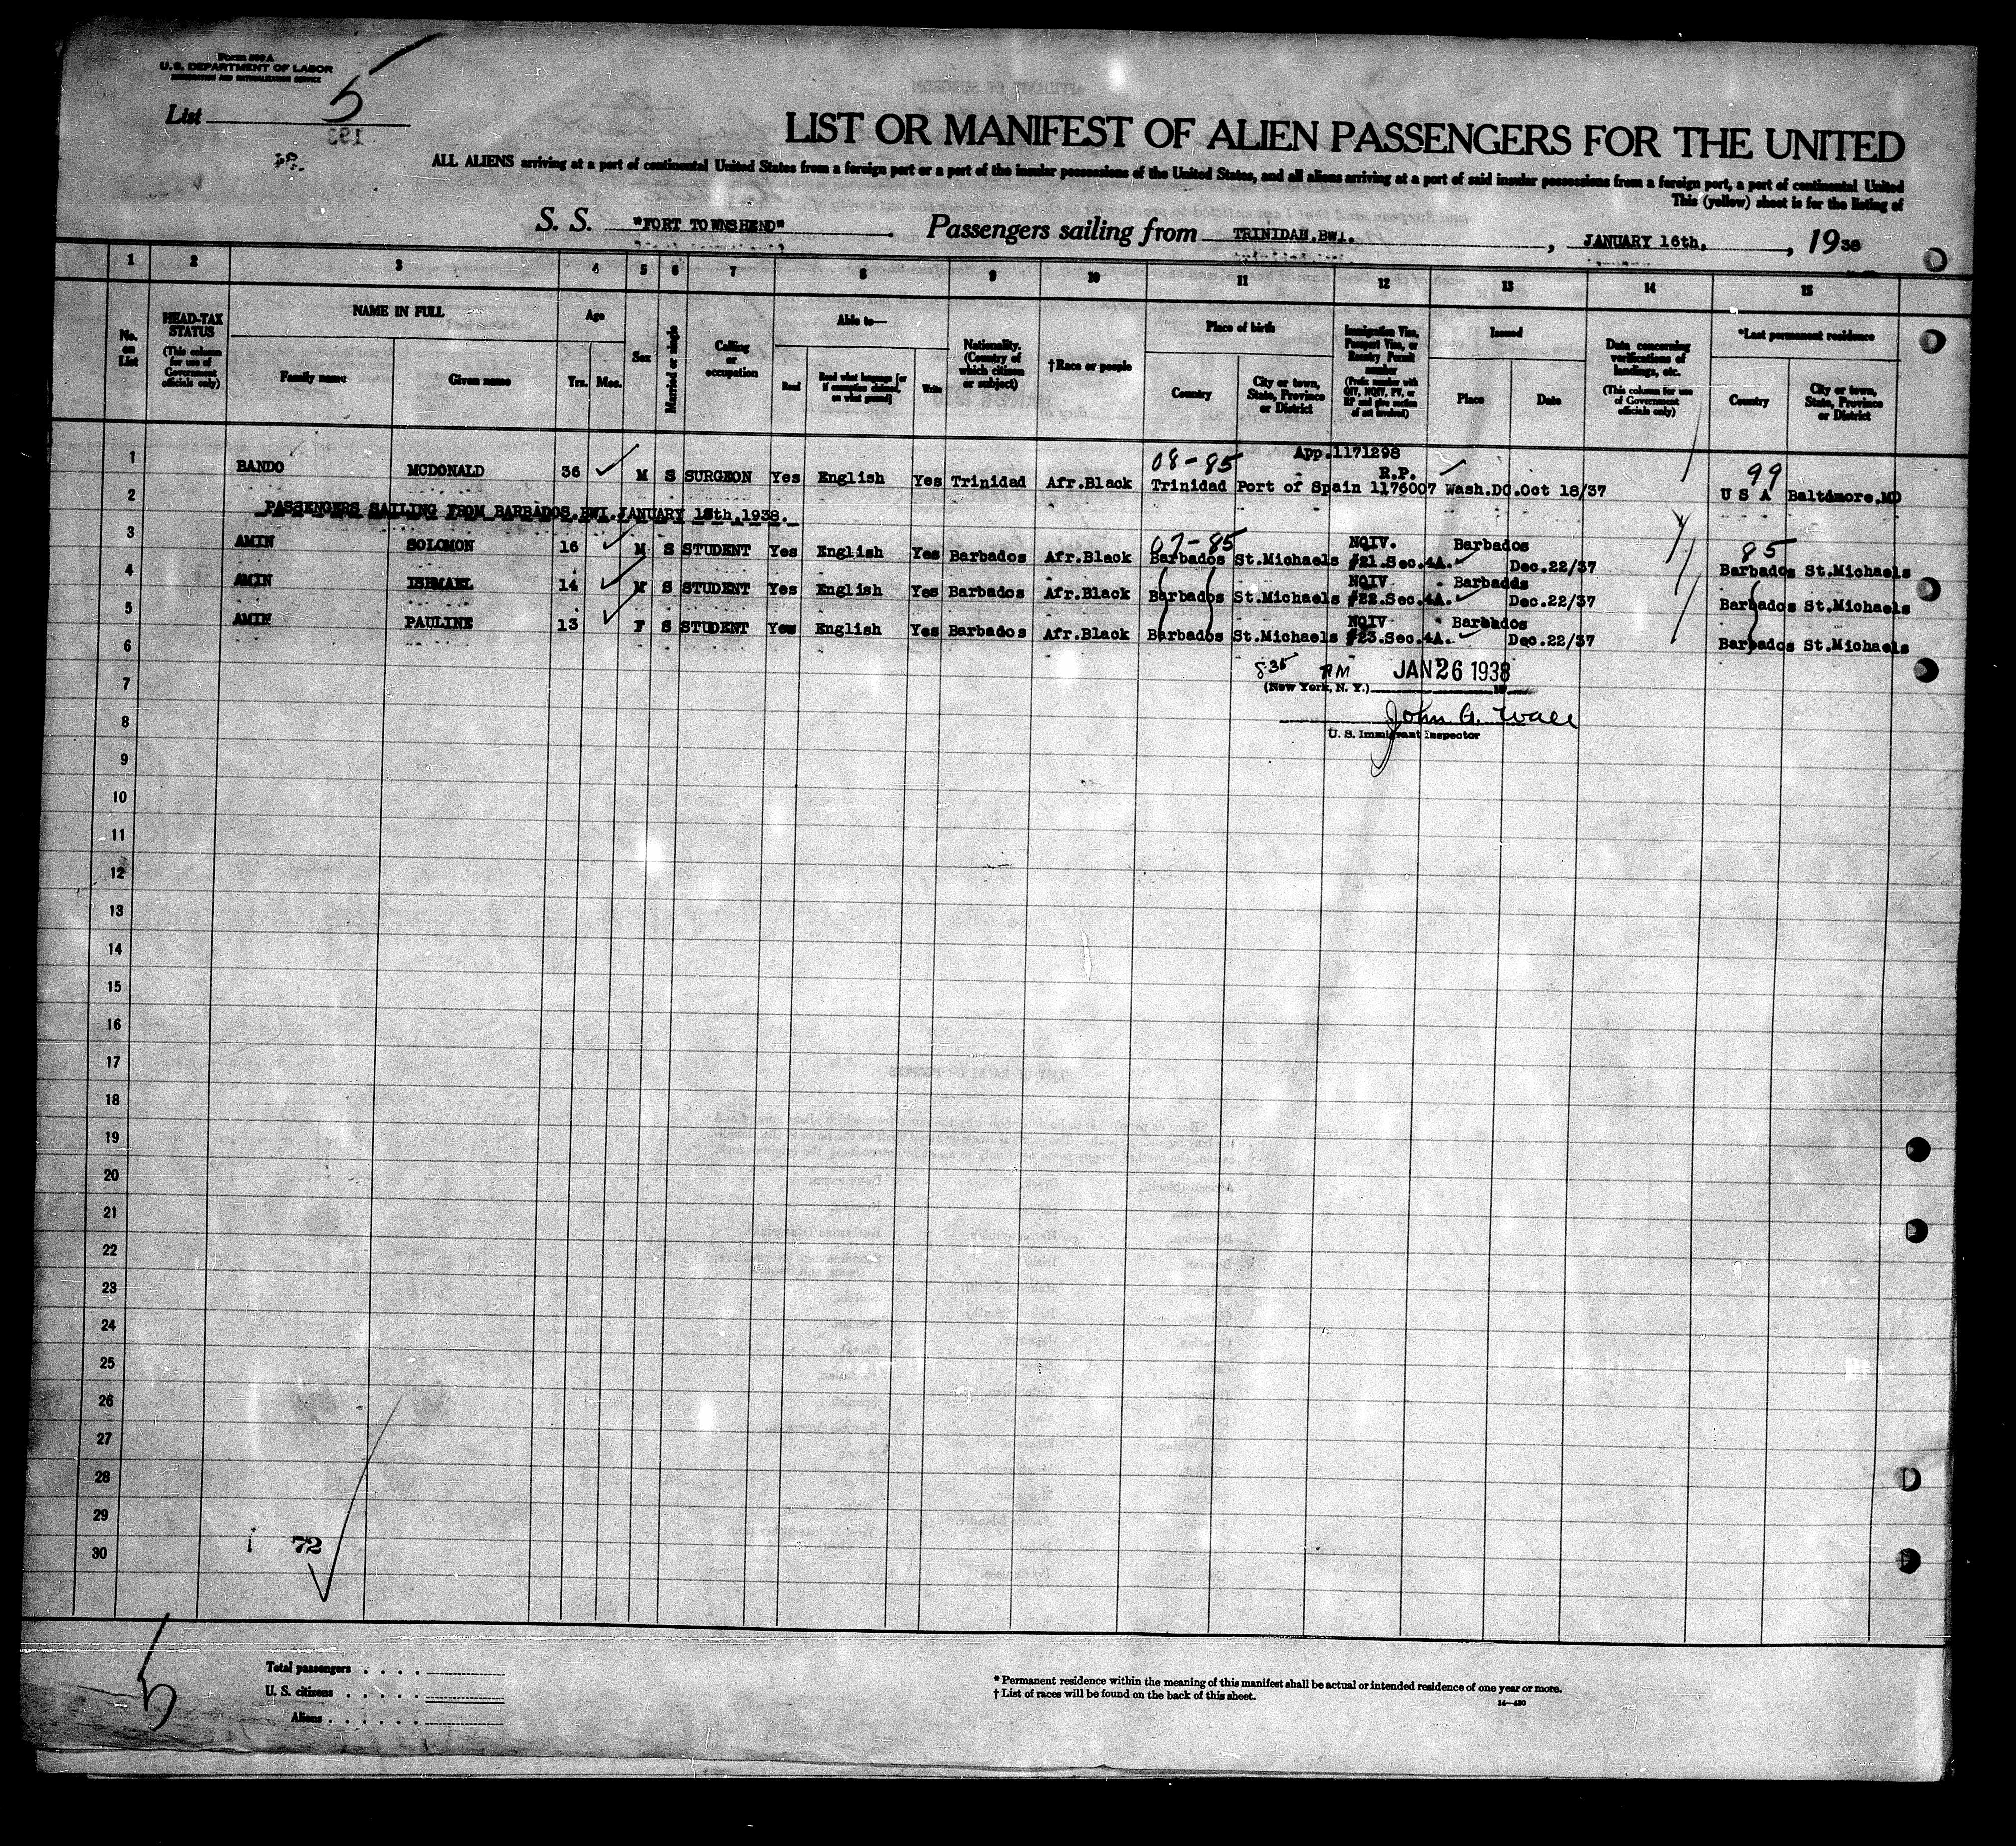 Form 500 A
U. S. DEPARTMENT OF LABOR
IMMIGRATION AND NATURALIZATION SERVICE
List 5
193
LIST OR MANIFEST OF ALIEN PASSENGERS FOR THE UNITED
ALL ALIENS arriving at a port of continental United States from a foreign port or a port of the insular possessions of the United States, and all aliens arriving at a port of said insular possessions from a foreign port, a port of continental United
This (yellow) sheet is for the listing of
S. S. "FORT TOWNSHEND" . Passengers sailing from TRINIDAD.BWI. , JANUARY 16th, , 1938
1 2 3 4 5 6 7 8 9 10 11 12 13 14 15
No. on List
HEAD-TAX STATUS (This column for use of Government officials only)
NAME IN FULL
Family name Given name
Age
Yrs. Mos.
Sex
Married or single
Calling or occupation
Able to—
Read Read what language [or if exemption claimed, on what ground] Write
Nationality. (Country of which citizen or subject)
†Race or people
Place of birth
Country City or town, State, Province or District
Immigration Visa, Passport Visa, or Reentry Permit number (Prefix number with QIV, NQIV, PV, or RP and give section of act involved)
Issued
Place Date
Data concerning verifications of landings, etc. (This column for use of Government officials only)
*Last permanent residence
Country City or town, State, Province or District
08-85 App.1171298 99
1 BANDO MCDONALD 36 M S SURGEON Yes English Yes Trinidad Afr.Black Trinidad Port of Spain R.P. 1176007 Wash.DC.Oct 18/37 U S A Baltimore.MD
2 PASSENGERS SAILING FROM BARBADOS.BWI.JANUARY 18th,1938.
07-85 85
3 AMIN SOLOMON 16 M S STUDENT Yes English Yes Barbados Afr.Black Barbados St.Michaels NQIV. #21.Sec.4A. Barbados Dec.22/37 Barbados St.Michaels
4 AMIN ISHMAEL 14 M S STUDENT Yes English Yes Barbados Afr.Black Barbados St.Michaels NQIV #22.Sec.4A. Barbados Dec.22/37 Barbados St.Michaels
5 AMIN PAULINE 13 F S STUDENT Yes English Yes Barbados Afr.Black Barbados St.Michaels NQIV #23.Sec.4A. Barbados Dec.22/37 Barbados St.Michaels
6
835 AM JAN 26 1938
7
(New York, N. Y.) 19
John G. Wall
8
U. S. Immigrant Inspector
9
10
11
12
13
14
15
16
17
18
19
20
21
22
23
24
25
26
27
28
29
30
72
5
Total passengers . . . .
U. S. citizens . . . . .
Aliens . . . . . .
* Permanent residence within the meaning of this manifest shall be actual or intended residence of one year or more.
† List of races will be found on the back of this sheet.
14—430